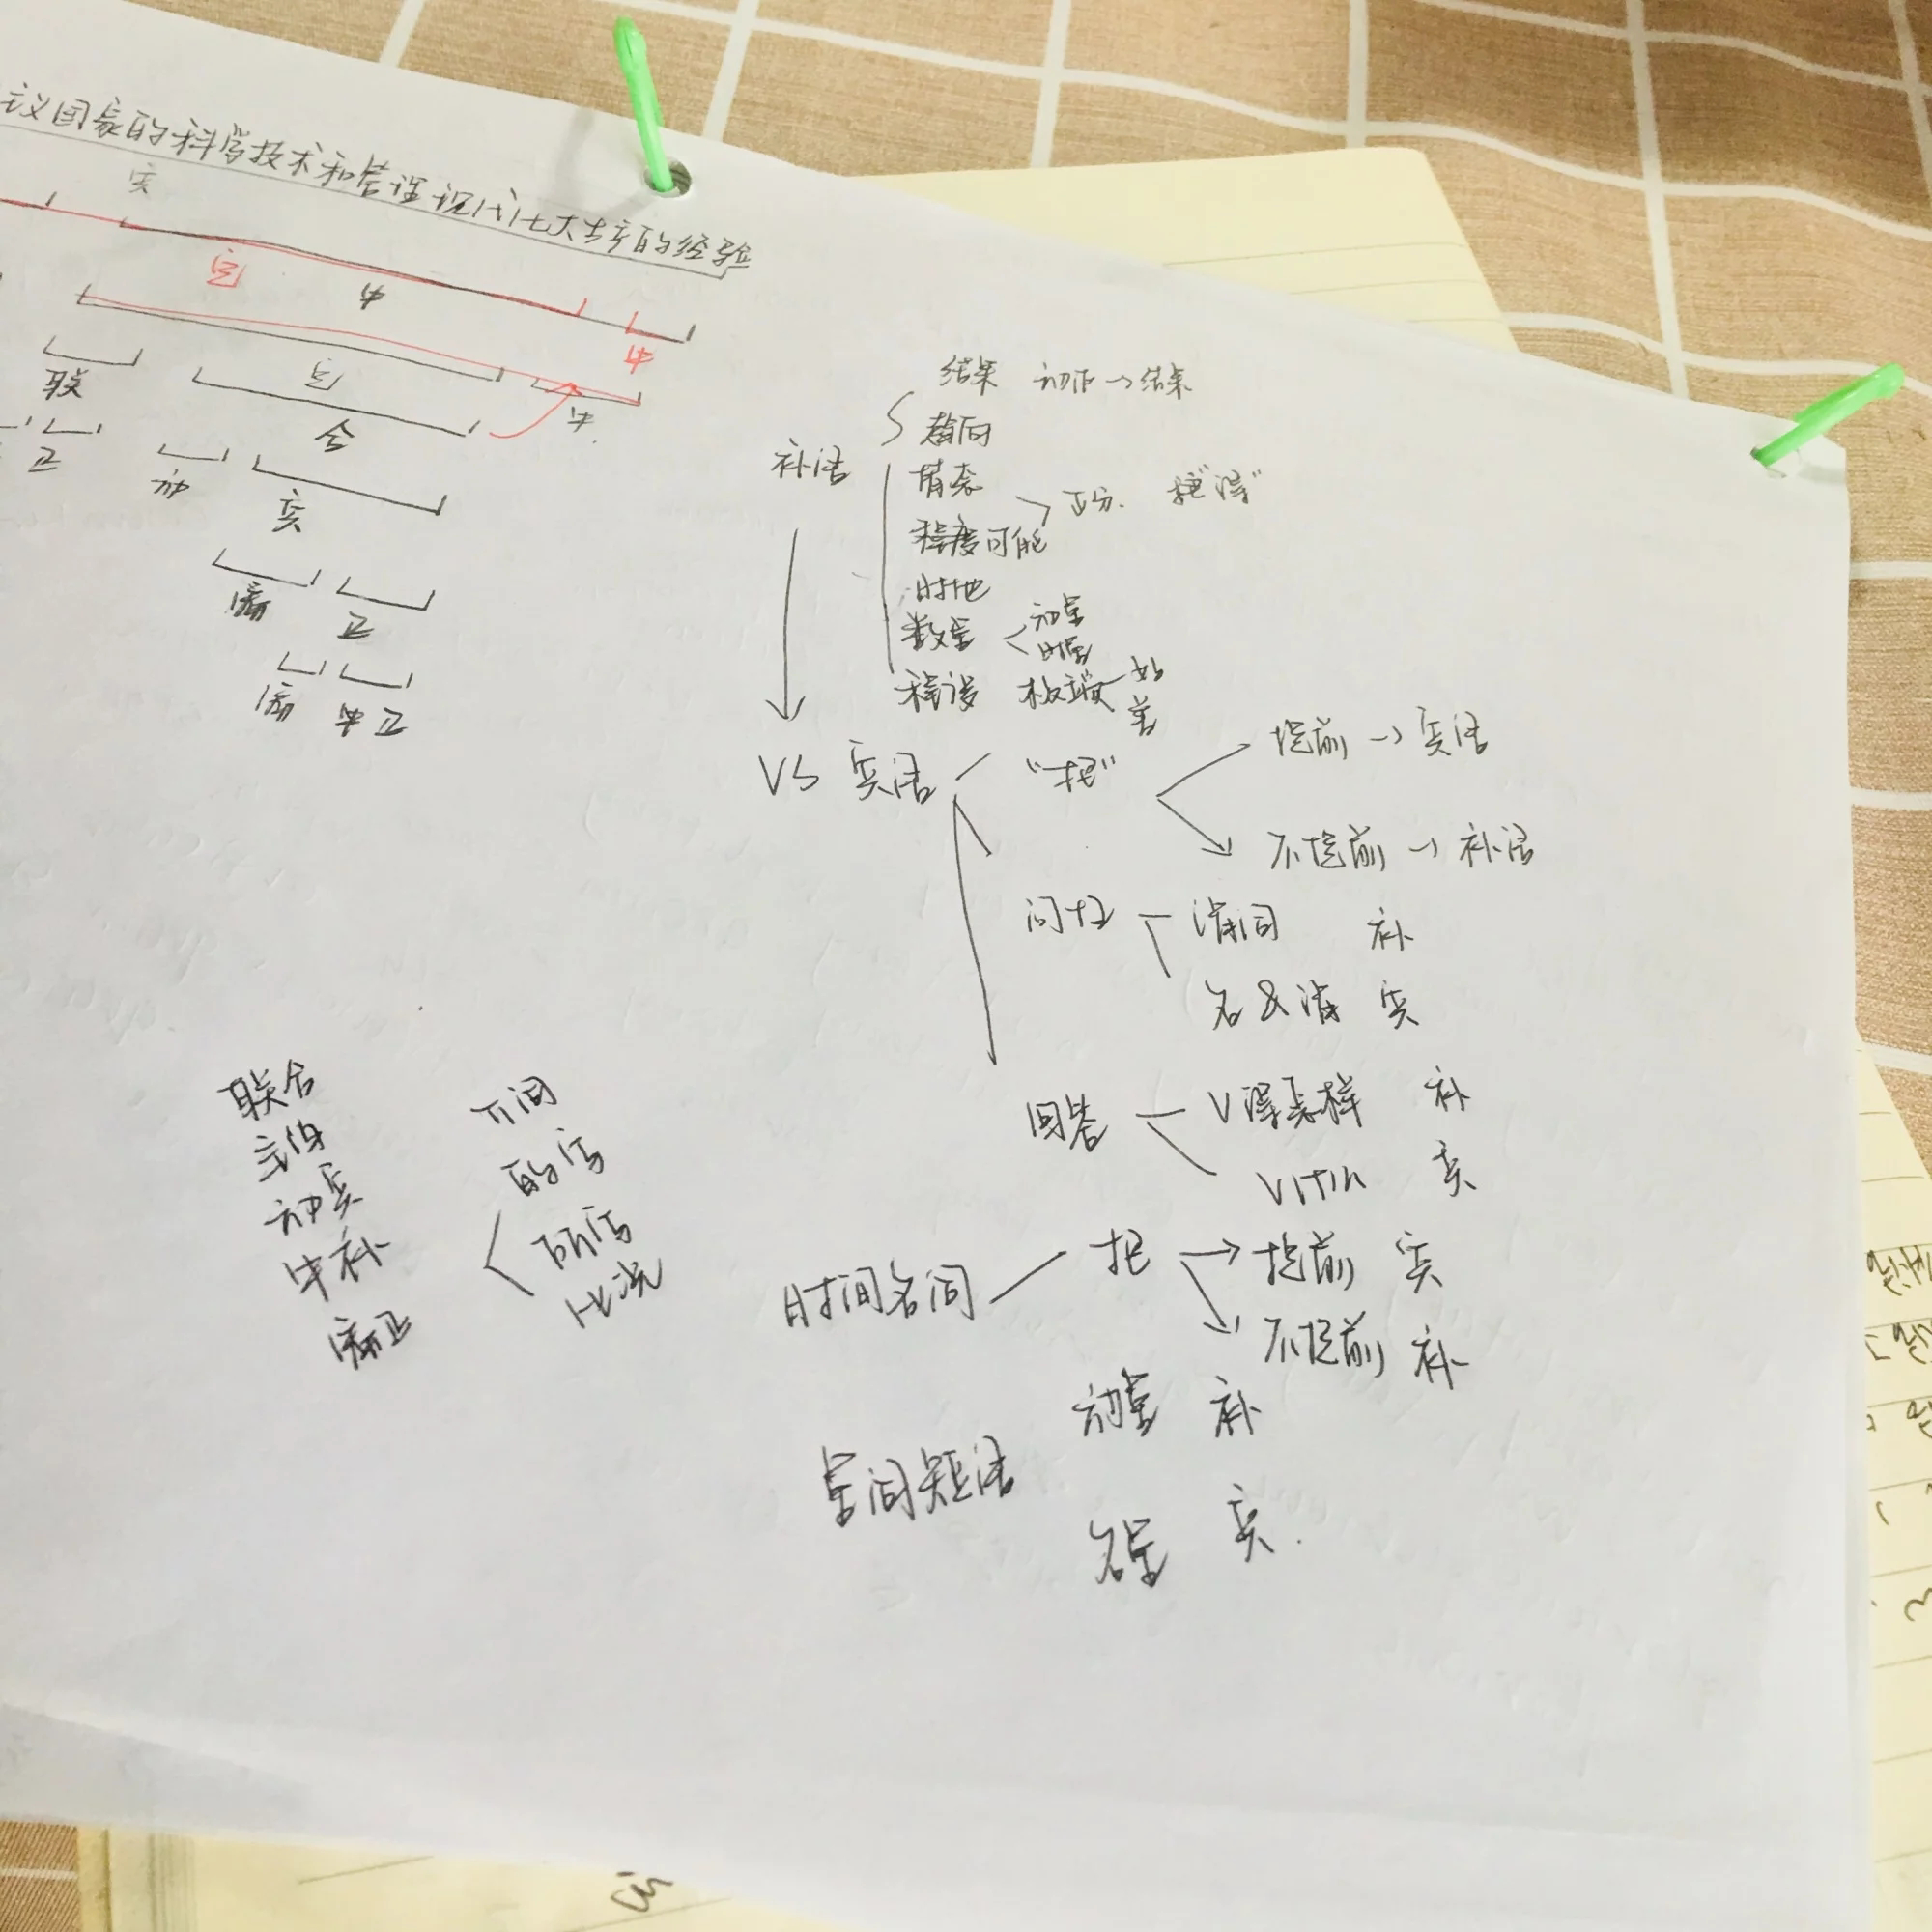 议国家的科学技术和管理现代化大生产的经验
宾
定 中
中
联 定 中
正 介
动 宾
偏 正
偏 中 正
结果 动作→结果
趋向
补语 情态
区分. 把"得"
程度 可能
时地
数量 动量
时量
程度 极 很
VS 宾语 "把" 提前→宾语
不提前→补语
词性 谓词 补
名&谓 宾
回答 V得怎样 补
V什么 宾
时间名词 把 提前 宾
不提前 补
量词短语 动量 补
名量 宾.
联合 介词
主谓 的字
动宾 所字
中补 比况
偏正